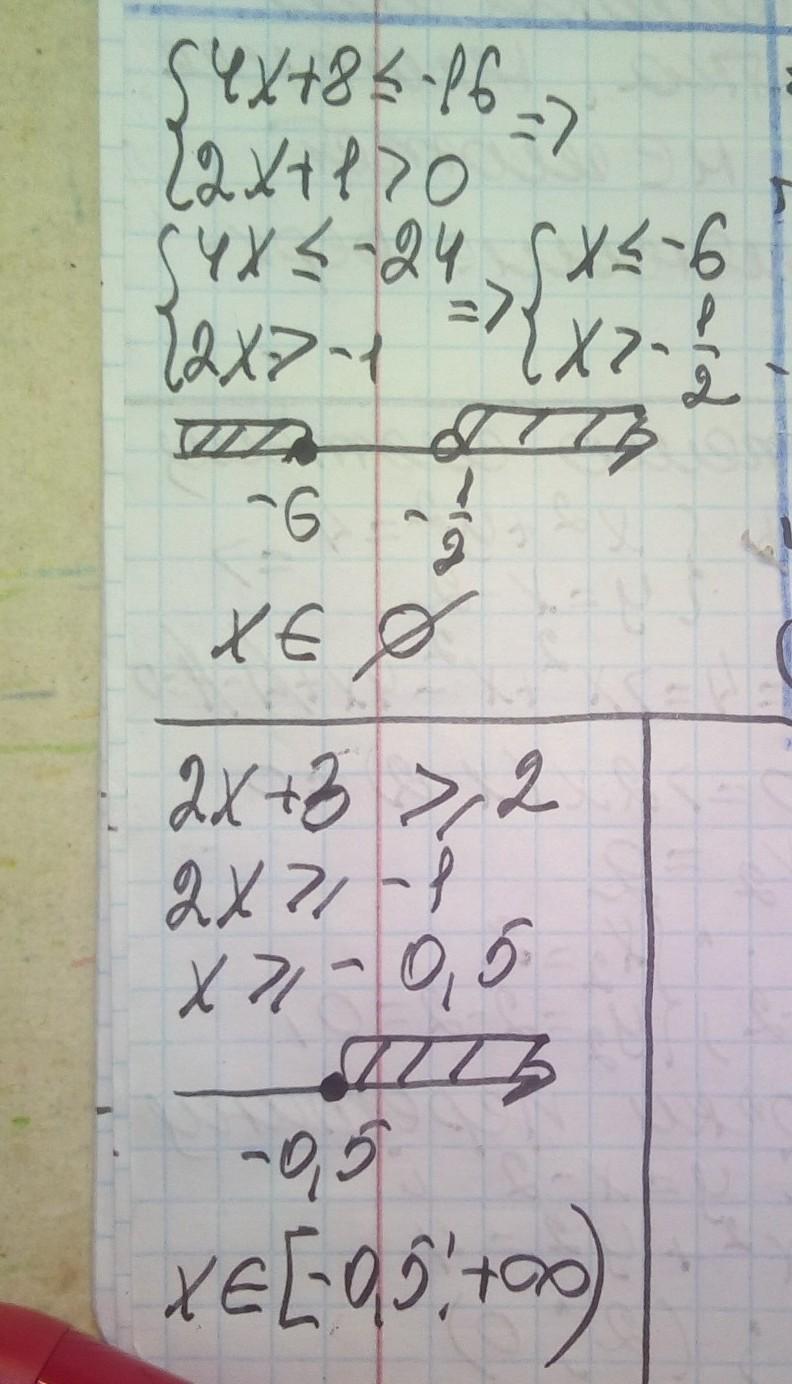 {4x+8≤-16
{2x+1>0 =>
{4x≤-24 => {x≤-6
{2x>-1 {x>-1/2
-6 -1/2
x∈ ∅
2x+3 ≥ 2
2x≥-1
x≥-0,5
-0,5
x∈[-0,5;+∞)